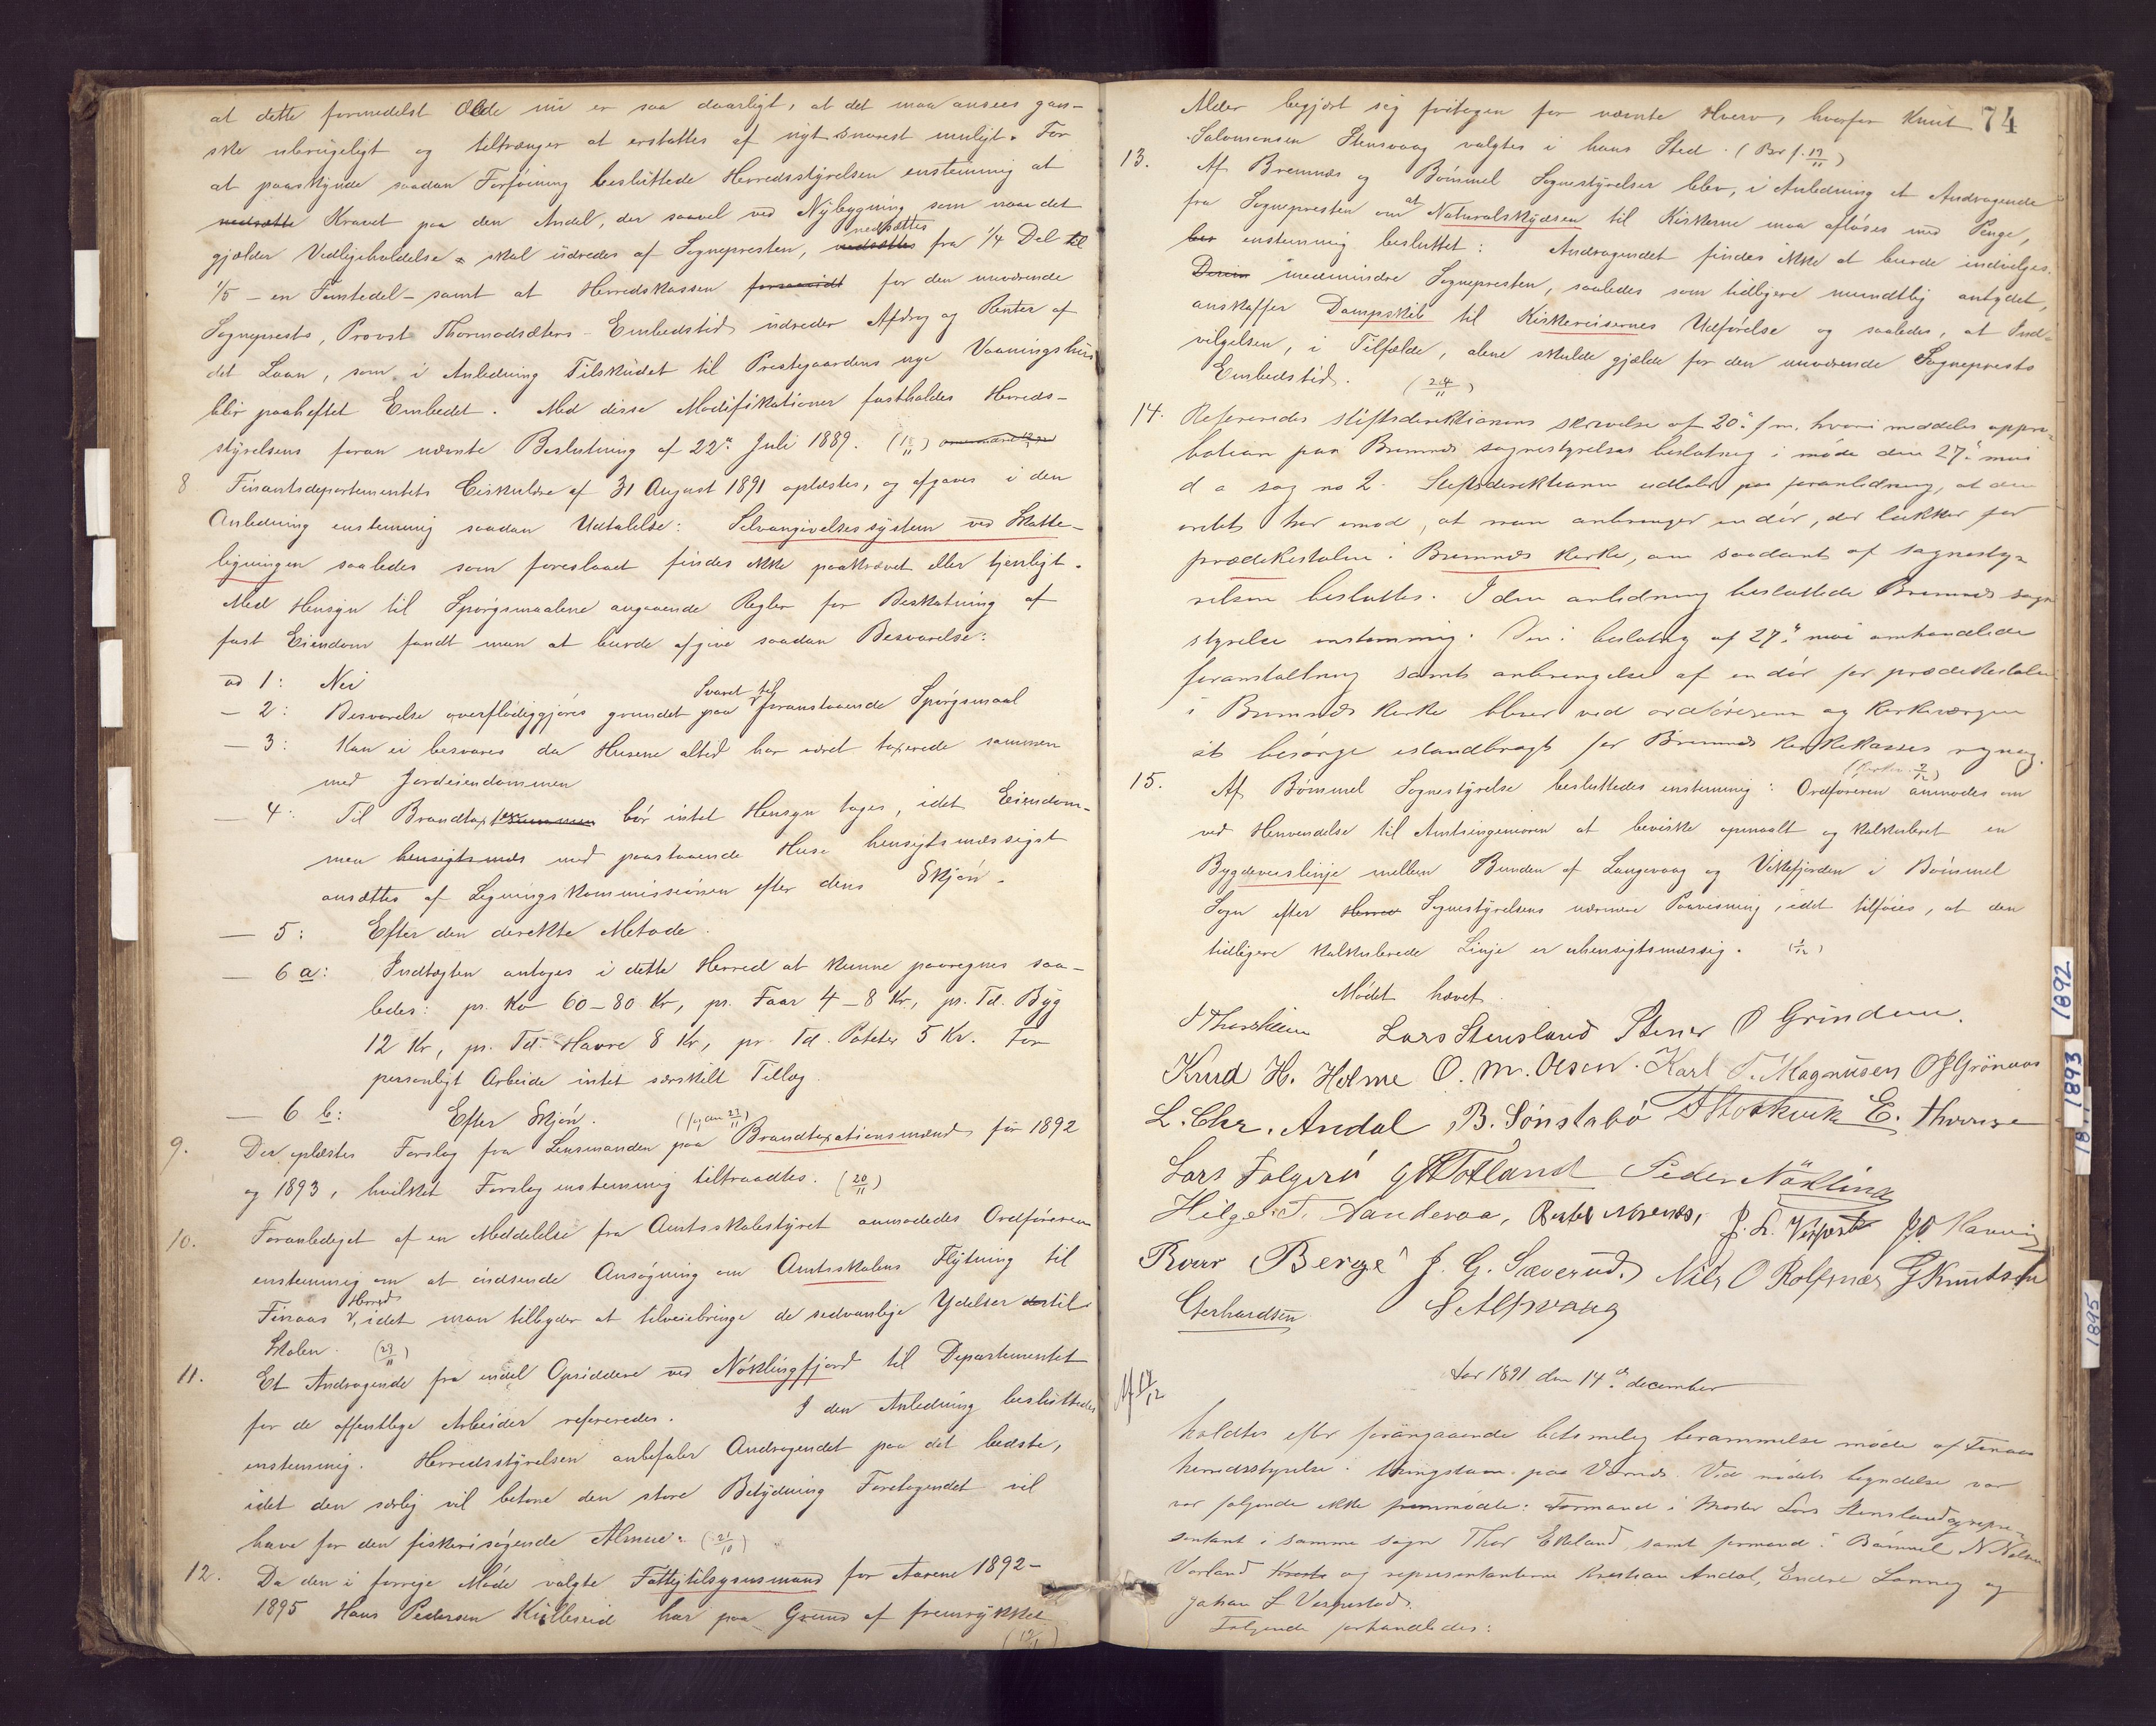 at dette formedelst Ælde nu er saa daarligt, at det maa ansees gan-
ske ubrugeligt og tiltrænger at erstattes af nyt snarest muligt. For
at paaskynde saadan Forføining besluttede Herredsstyrelsen enstemmig at
nedsætte Kravet paa den Andel, der saavel ved Nybygning som naar det
gjælder Vedligeholdelse skal udredes af Sognepresten, nedsættes fra 1/4 Del til
1/5 - en Femtedel - samt at Herredskassen for den nuværende
Sogneprests, Provst Thormodsæters - Embedstid udreder Afdrag og Renter af
det Laan, som i Anledning Tilskudet til Prestegaardens nye Vaaningshus
blir paaheftet Embedet. Med disse Modifikationer fastholdes Herreds-
styrelsens foran nævnte Beslutning af 22de Juli 1889.
8 Finantsdepartementets Cirkulære af 31 August 1891 oplæstes, og afgaves i den
Anledning enstemmig saadan Udtalelse: Selvangivelsessystem ved Skatte-
ligningen saaledes som foreslaaet findes ikke paakrævet eller tjenligt.
Med Hensyn til Spørgsmaalene angaaende Regler for Beskatning af
fast Eiendom fandt man at burde afgive saadan Besvarelse:
ad 1: Nei
- 2: Besvarelse overflødiggjøres grundet paa Svaret til foranstaaende Spørgsmaal
- 3: Kan ei besvares da Husene altid har været taxerede sammen
med Jordeiendommen
- 4: Til Brandtaxten bør intet Hensyn tages, idet Eiendom-
men hensigtsmæs med paastaaende Huse hensigtsmæssigst
ansættes af Ligningskommissionen efter dens Skjøn.
- 5: Efter den direkte Metode.
- 6 a: Indtægten antages i dette Herred at kunne paaregnes saa-
ledes: pr. Ko 60-80 Kr, pr. Faar 4-8 Kr, pr. Td. Byg
12 Kr, pr. Td. Havre 8 Kr, pr. Td. Poteter 5 Kr. For
personligt Arbeide intet særskilt Tillæg
- 6 b: Efter Skjøn. 23/11
9. Der oplæstes Forslag fra Lensmanden paa Brandtaxationsmænd for 1892
og 1893, hvilket Forslag enstemmig tiltraadtes. (20/11)
10. Foranlediget af en Meddelelse fra Amtsskolestyret anmodedes Ordføreren
enstemmig om at indsende Ansøgning om Amtsskolens Flytning til
Finaas Herred, idet man tilbyder at tilveiebringe de sedvanlige Ydelser dertil
Skolen. (23/11)
11. Et Andragende fra endel Opsiddere ved Nøklingfjord til Departementet
for de offentlige Arbeider refereredes. I den Anledning besluttedes
enstemmig. Herredsstyrelsen anbefaler Andragendet paa det bedste,
idet den særlig vil betone den store Betydning Foretagendet vil
have for den fiskerisøgende Almue. (21/10)
12. Da den i forrige Møde valgte Fattigtilsynsmand for Aarene 1892-
1895 Hans Pedersen Killereid har paa Grund af fremrykket
74
Alder begjært sig fritagen for nævnte Hverv, hvorfor Knut
Salomonsen Stensvaag valgtes i hans Sted.
13. Af Bremnæs og Bømmel Sognestyrelser blev, i Anledning et Andragende
fra Sognepresten om at Naturalskydsen til Kirkerne maa afløses med Penge,
enstemmig besluttet: Andragendet findes ikke at burde indvilges,
medmindre Sognepresten, saaledes som tidligere mundtlig antydet,
anskaffer Dampskib til Kirkereisernes Udførelse og saaledes, at Ind-
vilgelsen, i Tilfælde, alene skulde gjælde for den nuværende Sogneprests
Embedstid. (24/11)
14. Refereredes stiftsdirektionens skrivelse af 20de f.m. hvori meddeles appro-
bation paa Bremnæs sognestyrelses beslutning i møde den 27de mai
d a sag no 2. Stiftsdirektionen udtaler paa foranledning, at den
intet har imod, at man anbringer en dør, der lukker for
prædikestolen i Bremnæs Kirke, om saadant af sognesty-
relsen besluttes. I den anledning besluttede Bremnæs sogne
styrelse enstemmig: Den i beslutng af 27de mai omhandlede
foranstaltning samt anbringelse af en dør for prædikestolen
i Bremnæs Kirke bliver ved ordføreren og Kirkeværgen
at besørge istandbragt for Bremnæs Kirkekasses regning.
15. Af Bømmel Sognestyrelse besluttedes enstemmig: Ordføreren anmodes om
ved Henvendelse til Amtsingeniøren at bevirke opmaalt og kalkuleret en
Bygdeveislinje mellem Bunden af Langevaag og Vikefjorden i Bømmel
Sogn efter Sognestyrelsens nærmere Paavisning, idet tilføies, at den
tidligere kalkulerede Linje er uhensigtsmæssig.
Mødet hævet.
Lars Stensland Stener O Grinden.
Knud H. Holme O. M. Olsen. Karl T. Magnusen
L. Chr. Andal B. Sønstabø E. Thorsen
Lars Folgerø Totland Peder Nökling
Helge T. Vandevaa,
Roar Berge J. G. Sæverud. Nils O Rolfsnæs G Knutsen
Gerhardsen S Alfsvaag
Aar 1891 den 14de december
holdtes efter forangaaende betimelig berammelse møde af Finaas
herredsstyrelse i thingstuen paa Værnæs. Ved mødets begyndelse var
var følgende ikke fremmødte: Formand i Moster Lars Stensland og repræ-
sentant i samme sogn Thor Ekeland, samt formand i Bømmel N Nelsen
Vorland og repræsentanterne Kristian Andal, Endre Lønning og
Johan L Vespestad.
Følgende forhandledes:
1892
1893
1895